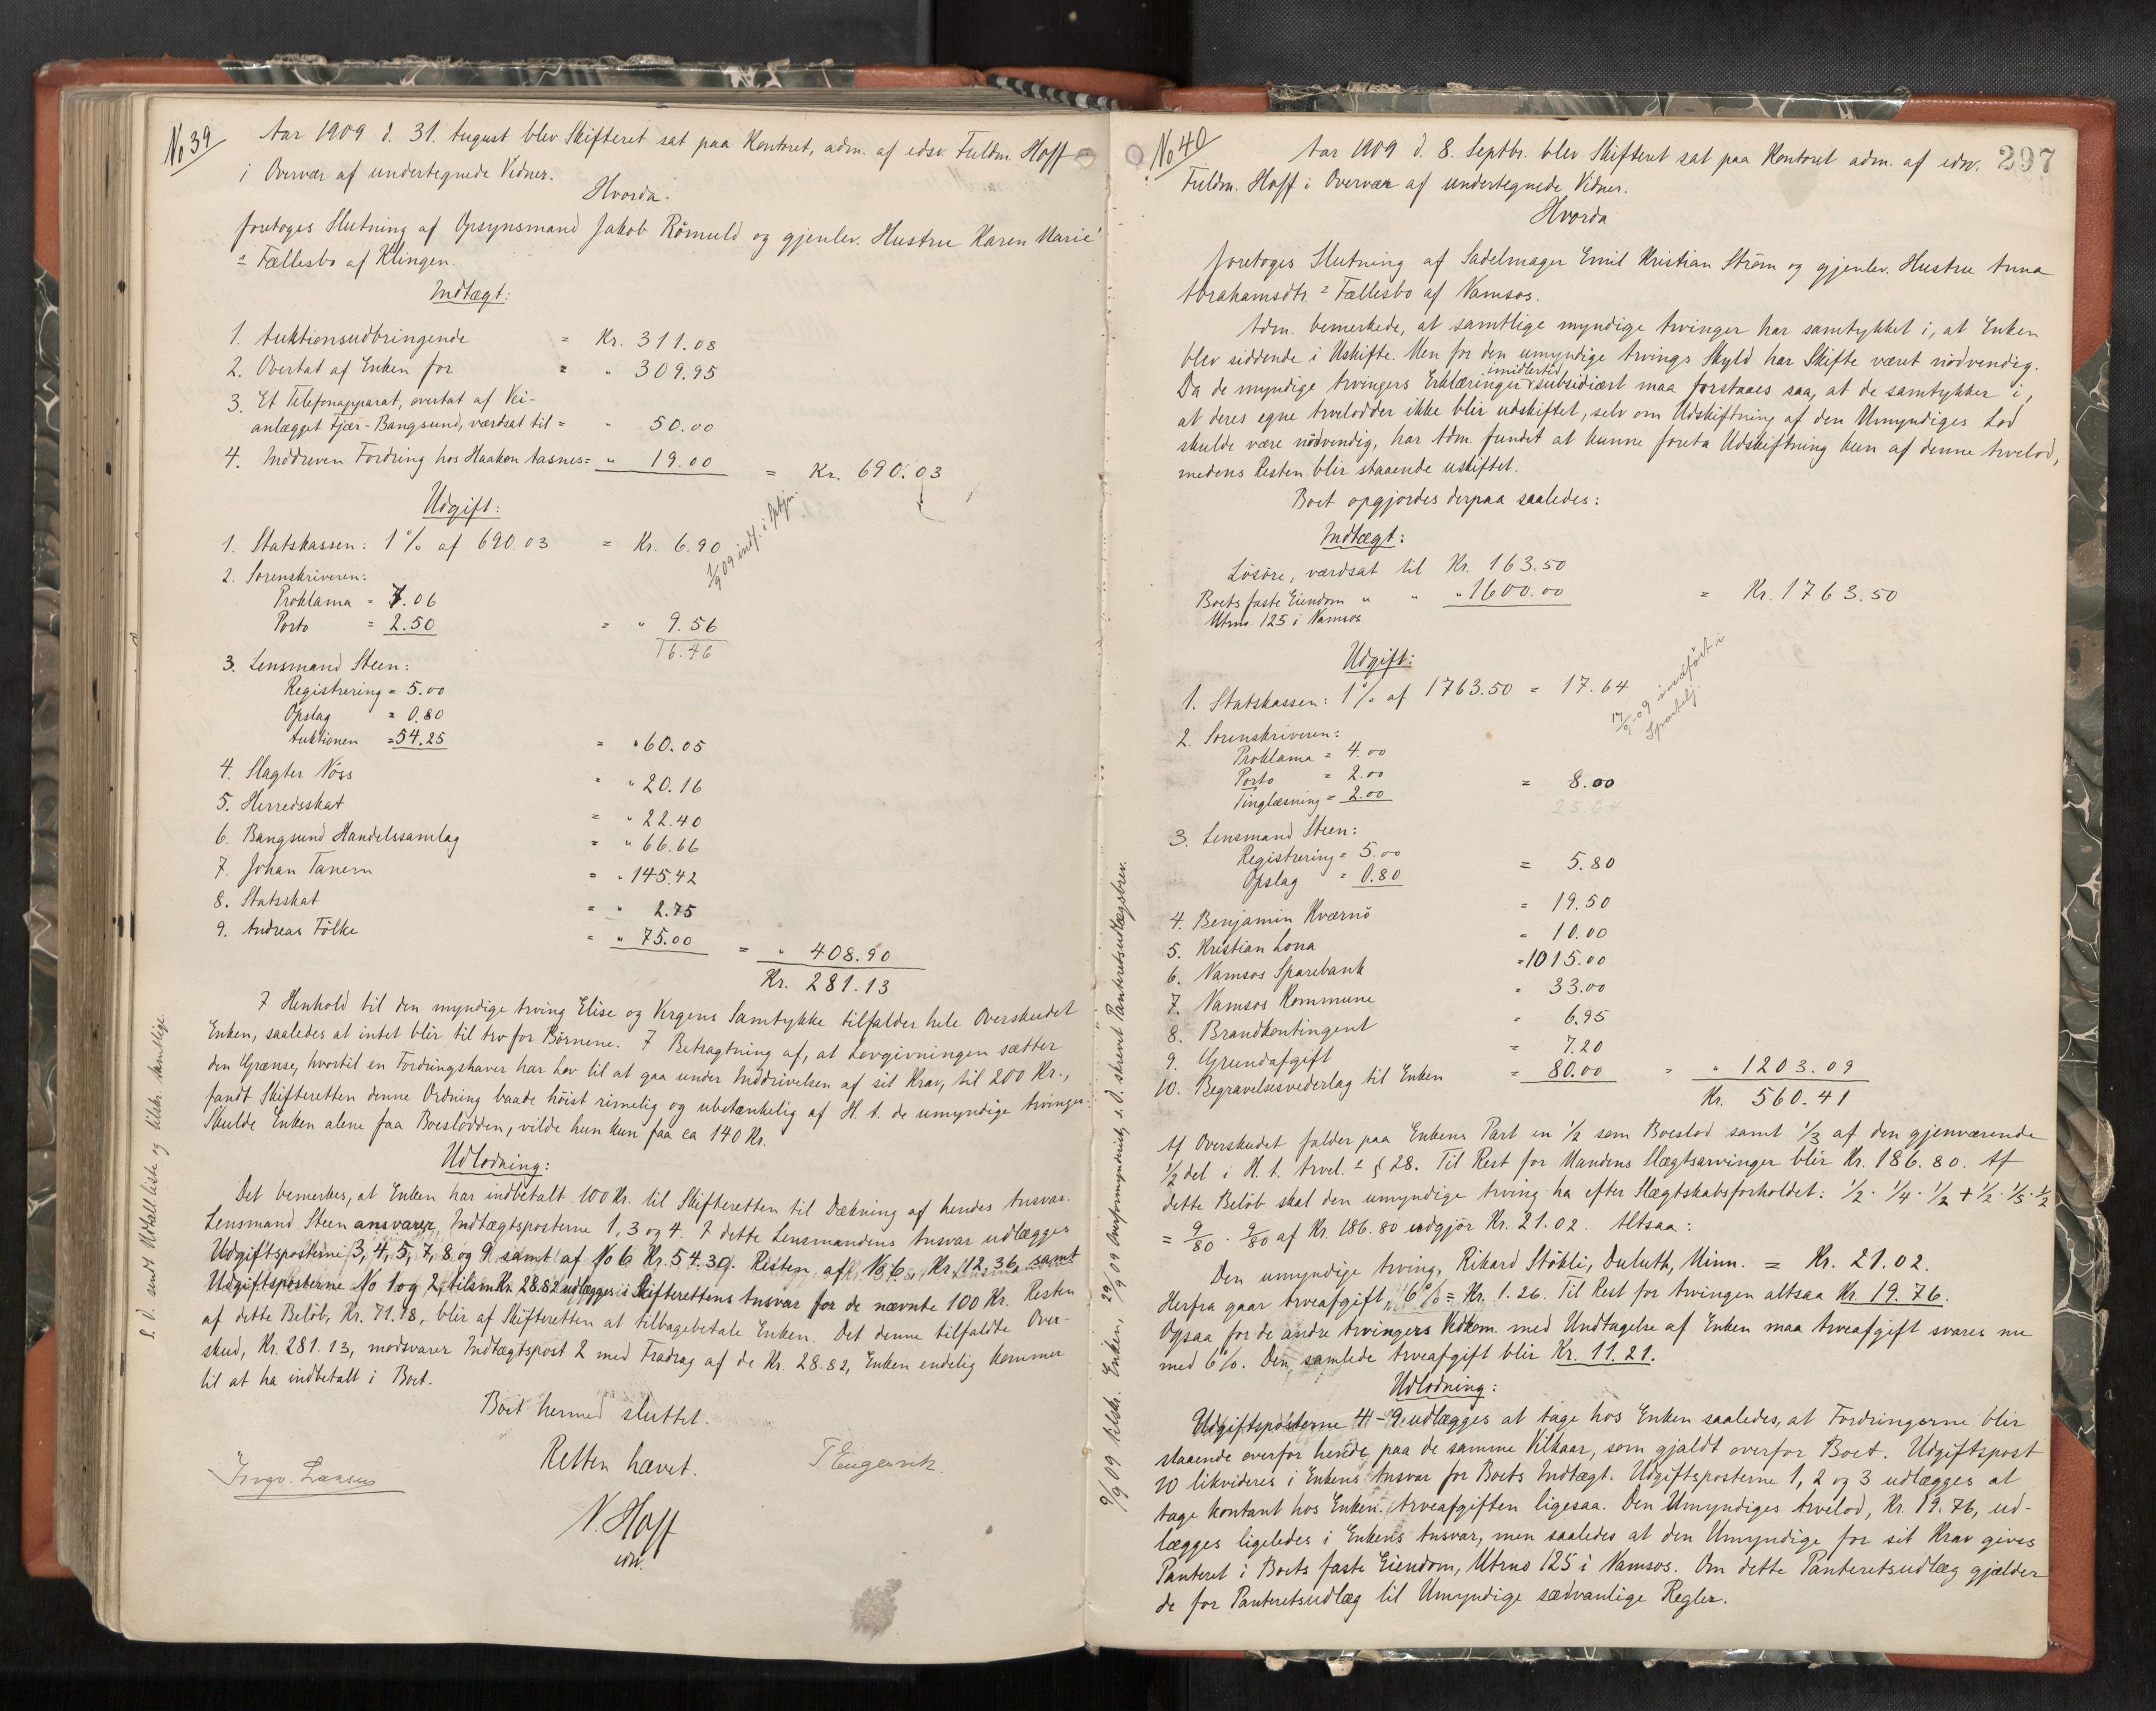 No 39
Aar 1909 d. 31. August blev Skifteret sat paa Kontoret, adm. af edsv. Fuldm. Hoff
i Overvær af undertegnede Vidner.
Hvorda.
foretoges Slutning af Opsynsmand Jakob Römuld og gjenlev. Hustru Karen Marie
= Fællesbo af Klingen.
Indtægt:
1. Auktionsudbringende = Kr. 311.08
2. Overtat af Enken for = " 309.95
3. Et Telefonapparat, overtat af Vei-
anlægget Fjær-Bangsund, værdsat til = " 50.00
4. Inddreven Fordring hos Haakon Aasnes = " 19.00 = Kr. 690.03
Udgift:
1. Statskassen: 1% af 690.03 = Kr. 6.90
1/9 09 indf. i
2. Sorenskriveren:
Proklama = 7.06
Porto = 2.50 = " 9.56
16.46
3. Lensmand Steen:
Registrering = 5.00
Opslag = 0.80
Auktionen = 54.25 = " 60.05
4. Slagter Nöss = " 20.16
5. Herredsskat = " 22.40
6. Bangsund Handelssamlag = " 66.66
7. Johan Tanem = " 145.42
8. Statsskat = " 2.75
9. Andreas Fölke = " 75.00 = " 408.90
Kr. 281.13
I Henhold til den myndige Arving Elise og Vergens Samtykke tilfalder hele Overskudet
Enken, saaledes at intet blir til Arv for Börnene. I Betragtning af, at Lovgivningen sætter
den Grænse, hvortil en Fordringshaver har Lov til at gaa under Inddrivelsen af sit Krav, til 200 Kr.,
fandt Skifteretten denne Ordning baade höist rimelig og ubetænkelig af H. t. de umyndige Arvinger.
Skulde Enken alene faa Boeslodden, vilde hun kun faa ca 140 Kr.
Udlodning:
Det bemerkes, at Enken har indbetalt 100 Kr. til Skifteretten til Dækning af hendes Ansvar.
Lensmand Steen ansvarer Indtægtsposterne 1, 3 og 4. I dette Lensmandens Ansvar udlægges
Udgiftsposterne 3, 4, 5, 7, 8 og 9 samt af No 6 Kr. 54.30. Resten af No 6, Kr. 12.36, samt
Udgiftsposterne No 1 og 2, tilsm Kr. 28.82 udlægges i Skifterettens Ansvar for de nævnte 100 Kr. Resten
af dette Belöb, Kr. 71.18, blir af Skifteretten at tilbagebetale Enken. Det denne tilfaldte Over-
skud, Kr. 281.13, modsvarer Indtægtspost 2 med Fradrag af de Kr. 28.82, Enken endelig kommer
til at ha indbetalt i Boet.
Boet hermed sluttet.
Retten hævet.
Ingv. Laasus
T Engesvik
N. Hoff
edsv.
S. D. sendt Utdall liste og tilskr. samtlige
No 40
297
Aar 1909 d. 8. Septbr. blev Skifteret sat paa Kontoret adm. af edsv.
Fuldm. Hoff i Overvær af undertegnede Vidner.
Hvorda
foretoges Slutning af Sadelmager Emil Kristian Ström og gjenlev. Hustru Anna
Abrahamsdtr. = Fællesbo af Namsos.
Adm. bemerkede, at samtlige myndige Arvinger har samtykket i, at Enken
blev siddende i Uskifte. Men for den umyndige Arvings Skyld har Skifte været nödvendig.
Da de myndige Arvingers Erklæringer imidlertid subsidiært maa forstaaes saa, at de samtykker i,
at deres egne Arvelodder ikke blir udskiftet, selv om Udskiftning af den Umyndiges Lod
skulde være nödvendig, har Adm. fundet at kunne foreta Udskiftning kun af denne Arvelod,
medens Resten blir staaende uskiftet.
Boet opgjordes derpaa saaledes:
Indtægt:
Lösöre, værdsat til Kr. 163.50
Boets faste Eiendom " " " 1600.00 = Kr. 1763.50
Utrno 125 i Namsos
Udgift:
1. Statskassen: 1% af 1763.50 = 17.64
17/9-09 indfört i
Sportelj.
2. Sorenskriveren:
Proklama = 4.00
Porto = 2.00
Tinglæsning = 2.00 = 8.00
25.64
3. Lensmand Steen:
Registrering = 5.00
Opslag = 0.80 = 5.80
4. Benjamin Kværnö = 19.50
5. Kristian Lona = 10.00
6. Namsos Sparebank = 1015.00
7. Namsos Kommune = 33.00
8. Brandkontingent = 6.95
9. Grundafgift = 7.20
10. Begravelsesvederlag til Enken = 80.00 = " 1203.09
Kr. 560.41
Af Overskudet falder paa Enkens Part en 1/2 som Boeslod samt 1/3 af den gjenværende
1/2 del i H. t. Arvel. = § 28. Til Rest for Mandens Slægtsarvinger blir Kr. 186.80. Af
dette Belöb skal den umyndige Arving ha efter Slægtskabsforholdet: 1/2 · 1/4 · 1/2 + 1/2 · 1/5 · 1/2
= 9/80 · 9/80 af Kr. 186.80 udgjör Kr. 21.02. Altsaa:
Den umyndige Arving, Rikard Stökli, Duluth, Minn. = Kr. 21.02.
Herfra gaar Arveafgift, 6% = Kr. 1.26. Til Rest for Arvingen altsaa Kr. 19.76.
Ogsaa for de andre Arvingers Vedkom. med Undtagelse af Enken maa Arveafgift svares nu
med 6%. Den samlede Arveafgift blir Kr. 11.21.
Udlodning:
Udgiftsposterne 4-9 udlægges at tage hos Enken saaledes, at Fordringerne blir
staaende overfor hende paa de samme Vilkaar, som gjaldt overfor Boet. Udgiftspost
10 likvideres i Enkens Ansvar for Boets Indtægt. Udgiftsposterne 1, 2 og 3 udlægges at
tage kontant hos Enken. Arveafgiften ligesaa. Den Umyndiges Arvelod, Kr. 19.76, ud-
lægges ligeledes i Enkens Ansvar, men saaledes at den Umyndige for sit Krav gives
Panteret i Boets faste Eiendom, Utrno 125 i Namsos. Om dette Panteretsudlæg gjælder
de for Panteretsudlæg til Umyndige sædvanlige Regler.
9/9 09 tilskr. Enken, 29/9 09 Overformynderiet, s. D. skrevet Panteretsudlægsbrev.